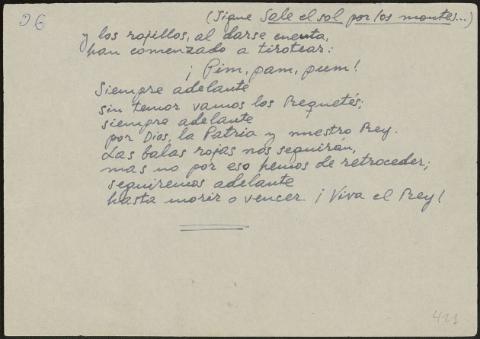 26
(Sigue Sale el sol por los montes...)
y los rojillos, al darse cuenta,
han comenzado a tirotear:
¡Pim, pam, pum!
Siempre adelante
sin temor vamos los Requetés;
siempre adelante
por Dios, la Patria y nuestro Rey.
Las balas rojas nos seguirán,
mas no por eso hemos de retroceder;
seguiremos adelante
hasta morir o vencer. ¡Viva el Rey!
421